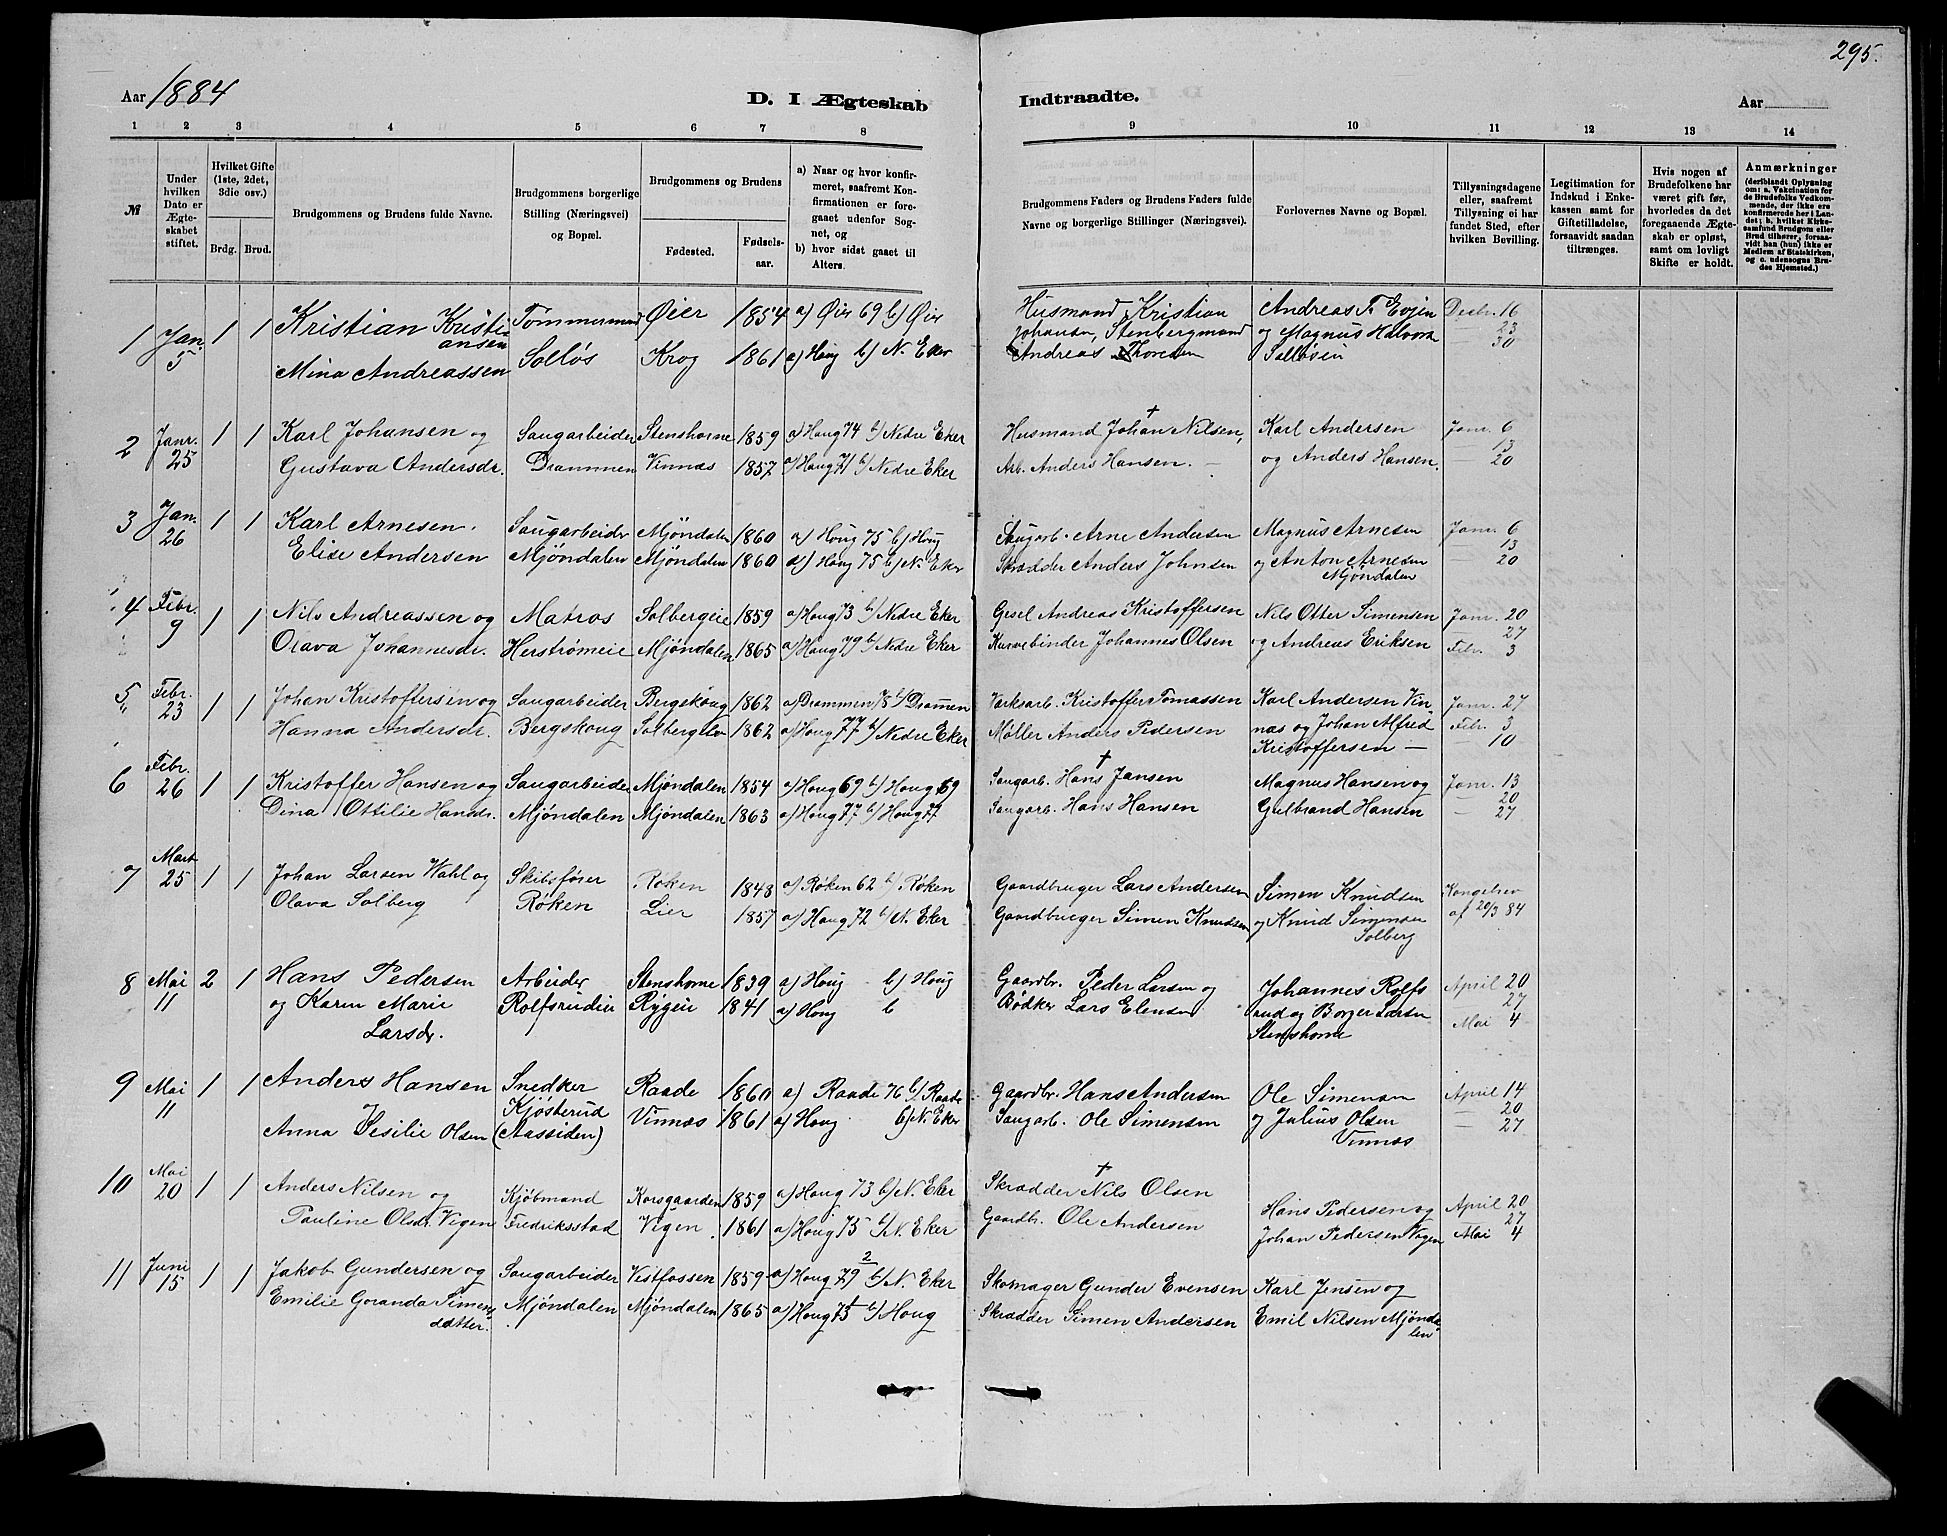 295.
Aar 1884
D. I Ægteskab Indtraadte.
Aar
1 2 3 4 5 6 7 8 9 10 11 12 13 14
№
Under hvilken Dato er Ægteskabet stiftet.
Hvilket Gifte (1ste, 2det, 3die osv.)
Brdg. Brud.
Brudgommens og Brudens fulde Navne.
Brudgommens borgerlige Stilling (Næringsvei) og Bopæl.
Brudgommens og Brudens
Fødested. Fødselsaar.
a) Naar og hvor konfirmeret, saafremt Konfirmationen er foregaaet udenfor Sognet, og
b) hvor sidst gaaet til Alters.
Brudgommens Faders og Brudens Faders fulde Navne og borgerlige Stillinger (Næringsvei).
Forlovernes Navne og Bopæl.
Tillysningsdagene eller, saafremt Tillysning ei har fundet Sted, efter hvilken Bevilling.
Legitimation for Indskud i Enkekassen samt for Giftetilladelse, forsaavidt saadan tiltrænges.
Hvis nogen af Brudefolkene har været gift før, hvorledes da det foregaaende Ægteskab er opløst, samt om lovligt Skifte er holdt.
Anmærkninger
(deriblandt Oplysning om: a. Vakcination for de Brudefolks Vedkommende, der ikke ere konfirmerede her i Landet; b. hvilket Kirkesamfund Brudgom eller Brud tilhører, forsaavidt han (hun) ikke er Medlem af Statskirken, og c. udensogns Brudes Hjemsted.)
1 Jan. 5 1 1 Kristian Kristiansen Tømmermand Øier 1854 a) Øier 69 b) Øier Husmand Kristian Johansen, Stenbergmand Andreas T. Evjen Decbr. 16
Mina Andreassen Solløs Krog 1861 a) Houg b) N. Eker Andreas Thoresen og Magnus Halvorsen Solløsen 23 30
2 Janr. 25 1 1 Karl Johansen og Saugarbeider Stenshorne 1859 a) Houg 74 b) Nedre Eker Husmand Johan † Nilsen, Karl Andersen Janr. 6
Gustava Andersdr. Drammen Vinnæs 1857 a) Houg 71 b) Nedre Eker Arb. Anders Hansen. og Anders Hansen. 13 20
3 Jan. 26 1 1 Karl Arnesen. Saugarbeider Mjøndalen 1860 a) Houg 75 b) Houg Saugarb. Arne Andersen Magnus Arnesen Janr. 6
Elise Andersen Mjøndalen Mjøndalen 1860 a) Houg 75 b) N. Eker Skrædder Anders Johnsen og Anton Arnesen Mjøndalen 13 20
4 Febr. 9 1 1 Nils Andreassen og Matros Solbergeie 1859 a) Houg 73 b) Nedre Eker Grsel Andreas Kristoffersen Nils Otter Simensen Janr. 20
Olava Johannesdr. Herstrømeie Mjøndalen 1865 a) Houg 79 b) Nedre Eker Kurvebinder Johannes Olsen og Andreas Eriksen 27 Febr. 3
5 Febr. 23 1 1 Johan Kristoffersen og Saugarbeider Bergskoug 1862 a) Drammen 78 b) Dramen Værksarb. Kristoffer Tomassen Karl Andersen Vin- Janr. 27
Hanna Andersdr. Bergskoug Solbergelv 1862 a) Houg 77 b) Nedre Eker Møller Anders Pedersen næs og Johan Alfred Kristoffersen Febr. 3 10
6 Febr. 26 1 1 Kristoffer Hansen og Saugarbeider Mjøndalen 1854 a) Houg 69 b) Houg 69 Saugarb. Hans † Jansen Magnus Hansen og Janr. 13
Dina Ottilie Hansdr. Mjøndalen Mjøndalen 1863 a) Houg 77 b) Houg 77 Saugarb. Hans Hansen Gulbrand Hansen 20 27
7 Mart 25 1 1 Johan Larsen Wahl og Skibsfører Røken 1848 a) Røken 62 b) Røken Gaardbruger Lars Andersen Simen Knudsen Kongebrev
Olava Solberg Røken Lier 1857 a) Houg 72 b) N. Eker Gaardbruger Simen Knudsen og Knud Simensen Solberg af 20/3 84
8 Mai 11 2 1 Hans Pedersen Arbeider Stenshorne 1839 a) Houg b) Houg Gaardbr. Peder Larsen og Johannes Rolfs April 20
og Karen Marie Larsdr. Rolfsrudeie Rygeie 1841 a) Houg b Bødker Lars Elensen rud og Borger Larsen Stenshorne 27 Mai 4
9 Mai 11 1 1 Anders Hansen Snedker Raade 1860 a) Raade 76 b) Raade Gaardbr. Hans Andersen Ole Simensen April 14
og Anna Sesilie Olsen Kjøsterud (Aassiden) Vinnæs 1861 a) Houg b) N. Eker Saugarb. Ole Simensen og Julius Olsen Vinnæs 20 27
10 Mai 20 1 1 Anders Nilsen og Kjøbmand Korsgaarden 1859 a) Houg 73 b) N. Eker Skrædder Nils † Olsen Hans Pedersen og April 20
Pauline Olsdr. Vegen Fredriksstad Vegen 1861 a) Houg 75 b) N. Eker Gaardb. Ole Andersen Johan Pedersen Vegen 27 Mai 4
11 Juni 15 1 1 Jakob Gundersen og Saugarbeider Vestfossen 1859 a) Houg 79 b) N. Eker Skomager Gunder Evensen Karl Jensen og
Emilie Goranda Simensdatter. Mjøndalen Mjøndalen 1865 a) Houg b) Houg Skrædder Simen Andersen Emil Nilsen Mjøndalen